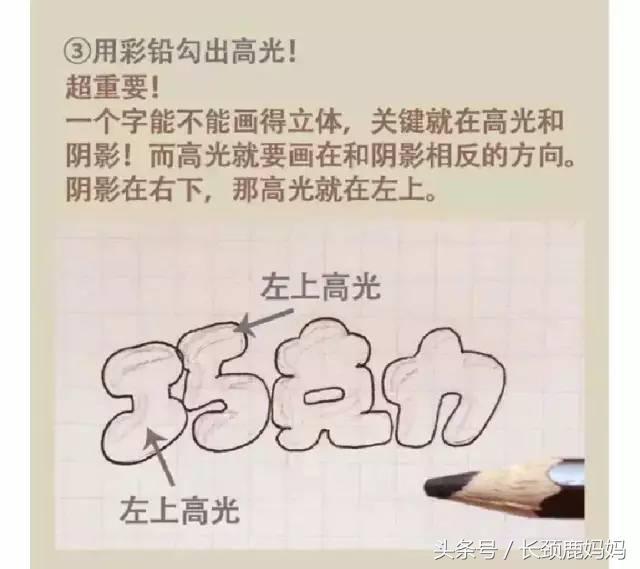 ③用彩铅勾出高光！
超重要！
一个字能不能画得立体，关键就在高光和
阴影！而高光就要画在和阴影相反的方向。
阴影在右下，那高光就在左上。
左上高光
巧克力
左上高光
头条号 / 长颈鹿妈妈